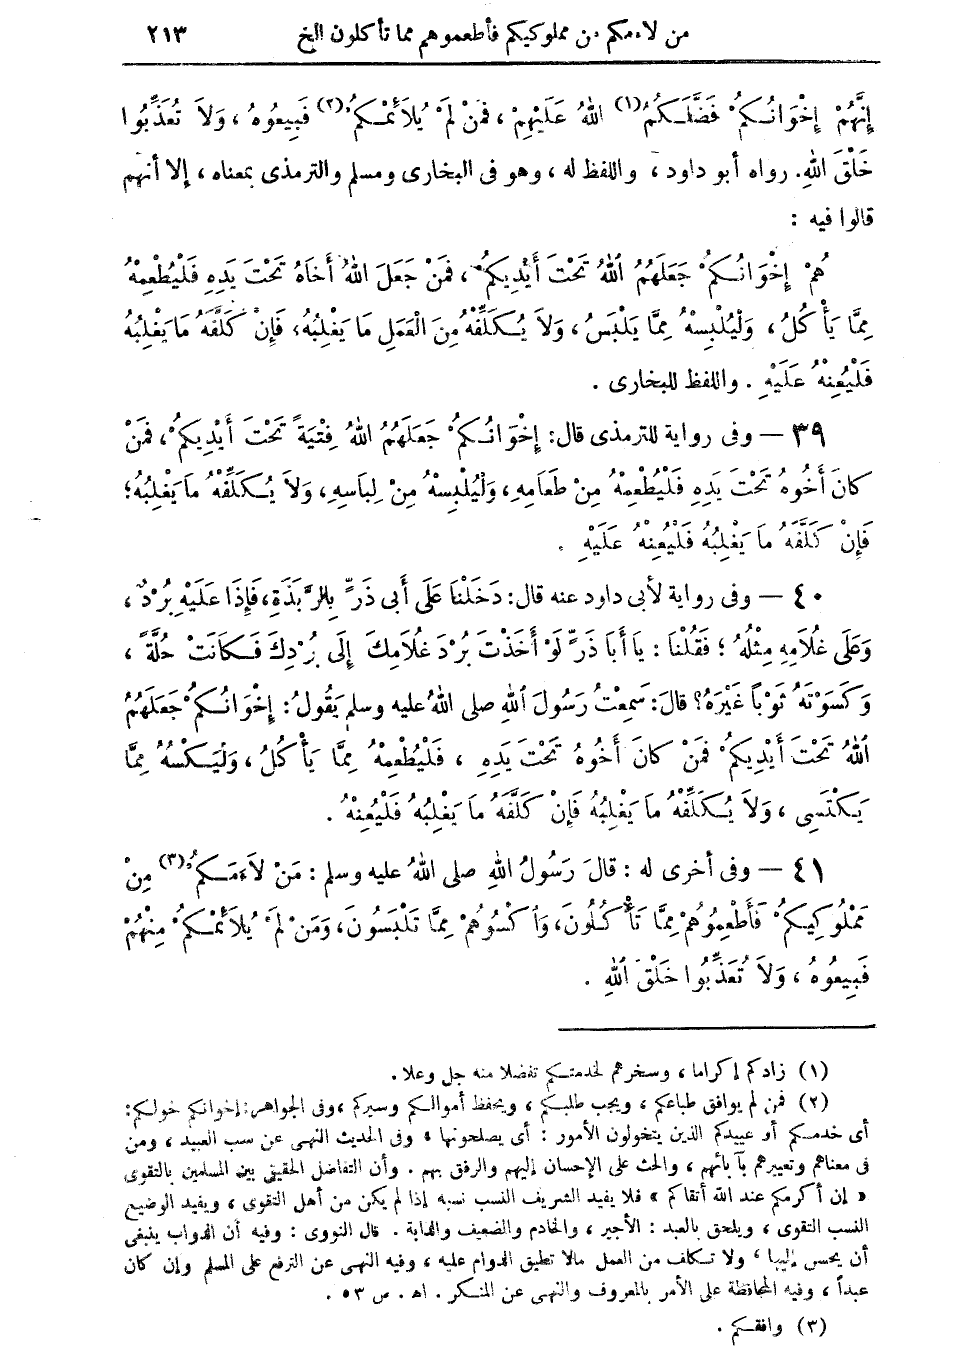 من لاءمكم من مملوكيكم فأطعموهم مما تأكلون الخ ٢١٣
إِنَّهُمْ إِخْوَانُكُمْ فَضَّلَكُمُ(١) اللهُ عَلَيْهِمْ ، فَمَنْ لَمْ يُلاَئِمْكُمْ(٢) فَبِيعُوهُ ، وَلاَ تُعَذِّبُوا
خَلْقَ اللهِ. رواه أبو داود ، واللفظ له ، وهو فى البخارى ومسلم والترمذى بمعناه ، إلا أنهم
قالوا فيه :
هُمْ إِخْوَانُكُمْ جَعَلَهُمُ اللهُ تَحْتَ أَيْدِيكُمْ ، فَمَنْ جَعَلَ اللهُ أَخَاهُ تَحْتَ يَدِهِ فَلْيُطْعِمْهُ
مِمَّا يَأْكُلُ ، وَلْيُلْبِسْهُ مِمَّا يَلْبَسُ ، وَلاَ يُكَلِّفْهُ مِنَ الْعَمَلِ مَا يَغْلِبُهُ، فَإِنْ كَلَّفَهُ مَا يَغْلِبُهُ
فَلْيُعِنْهُ عَلَيْهِ . واللفظ للبخارى .
٣٩ — وفى رواية للترمذى قال: إِخْوَانُكُمْ جَعَلَهُمُ اللهُ فِتْيَةً تَحْتَ أَيْدِيكُمْ ، فَمَنْ
كَانَ أَخُوهُ تَحْتَ يَدِهِ فَلْيُطْعِمْهُ مِنْ طَعَامِهِ، وَلْيُلْبِسْهُ مِنْ لِبَاسِهِ، وَلاَ يُكَلِّفْهُ مَا يَغْلِبُهُ؛
فَإِنْ كَلَّفَهُ مَا يَغْلِبُهُ فَلْيُعِنْهُ عَلَيْهِ .
٤٠ — وفى رواية لأبى داود عنه قال: دَخَلْنَا عَلَى أَبِى ذَرٍّ بِالرَّبَذَةِ، فَإِذَا عَلَيْهِ بُرْدٌ ،
وَعَلَى غُلَامِهِ مِثْلُهُ ؛ فَقُلْنَا : يَا أَبَا ذَرٍّ لَوْ أَخَذْتَ بُرْدَ غُلَامِكَ إِلَى بُرْدِكَ فَكَانَتْ حُلَّةً ،
وَكَسَوْتَهُ ثَوْبًا غَيْرَهُ؟ قَالَ: سَمِعْتُ رَسُولَ اللهِ صلى اللهُ عليه وسلم يَقُولُ: إِخْوَانُكُمْ جَعَلَهُمُ
اللهُ تَحْتَ أَيْدِيكُمْ فَمَنْ كَانَ أَخُوهُ تَحْتَ يَدِهِ ، فَلْيُطْعِمْهُ مِمَّا يَأْكُلُ ، وَلْيَكْسُهُ مِمَّا
يَكْتَسِى ، وَلاَ يُكَلِّفْهُ مَا يَغْلِبُهُ فَإِنْ كَلَّفَهُ مَا يَغْلِبُهُ فَلْيُعِنْهُ .
٤١ — وفى أخرى له : قالَ رَسُولُ اللهِ صلى اللهُ عليه وسلم : مَنْ لاَءَمَكُمْ(٣) مِنْ
مَمْلُوكِيكُمْ فَأَطْعِمُوهُمْ مِمَّا تَأْكُلُونَ، وَاكْسُوهُمْ مِمَّا تَلْبَسُونَ، وَمَنْ لَمْ يُلاَئِمْكُمْ مِنْهُمْ
فَبِيعُوهُ ، وَلاَ تُعَذِّبُوا خَلْقَ اللهِ .
(١) زادكم إكراما ، وسخرهم لخدمتكم تفضلا منه جل وعلا .
(٢) فمن لم يوافق طباعكم ، ويجب طلبكم ، ويحفظ أموالكم وسيركم ، وفى الجواهر: إخوانكم خولكم:
أى خدمكم أو عبيدكم الذين يتخولون الأمور : أى يصلحونها ، وفى الحديث النهى عن سب العبيد ، ومن
فى معناهم وتعييرهم بآبائهم ، والحث على الإحسان إليهم والرفق بهم . وأن التفاضل الحقيقى بين المسلمين بالتقوى
« إن أكرمكم عند الله أتقاكم » فلا يفيد الشريف النسب نسبه إذا لم يكن من أهل التقوى ، ويفيد الوضيع
النسب التقوى ، ويلحق بالعبد : الأجير ، والخادم والضعيف والدابة . قال النووى : وفيه أن الدواب ينبغى
أن يحسن إليها ، ولا تكلف من العمل مالا تطيق الدوام عليه ، وفيه النهى عن الترفع على المسلم وإن كان
عبداً ، وفيه المحافظة على الأمر بالمعروف والنهى عن المنكر . اه . ص ٥٣ .
(٣) وافقكم .